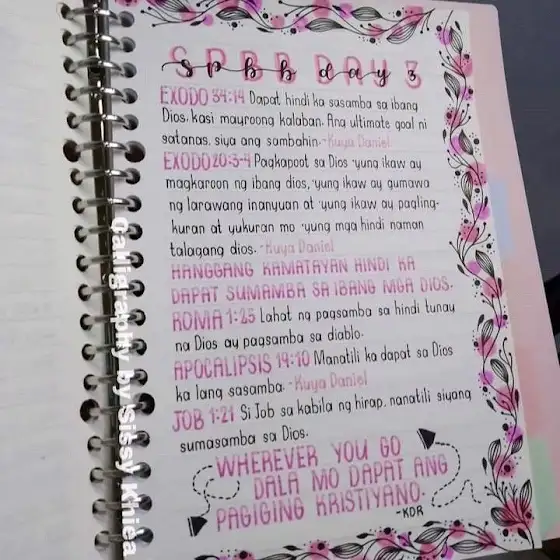 SPBB DAY 3
EXODO 34:14 Dapat hindi ka sasamba sa ibang
Dios, kasi mayroong kalaban. Ang ultimate goal ni
satanas, siya ang sambahin. -Kuya Daniel
EXODO 20:3-4 Pagkapoot sa Dios 'yung ikaw ay
magkaroon ng ibang dios, 'yung ikaw ay gumawa
ng larawang inanyuan at 'yung ikaw ay pagling-
kuran at yukuran mo 'yung mga hindi naman
talagang dios. -Kuya Daniel
HANGGANG KAMATAYAN HINDI KA
DAPAT SUMAMBA SA IBANG MGA DIOS.
ROMA 1:25 Lahat ng pagsamba sa hindi tunay
na Dios ay pagsamba sa diablo.
APOCALIPSIS 19:10 Manatili ka dapat sa Dios
ka lang sasamba. -Kuya Daniel
JOB 1:21 Si Job sa kabila ng hirap, nanatili siyang
sumasamba sa Dios.
WHEREVER YOU GO
DALA MO DAPAT ANG
PAGIGING KRISTIYANO.
-KDR
Calligraphy by Sissy Khiea